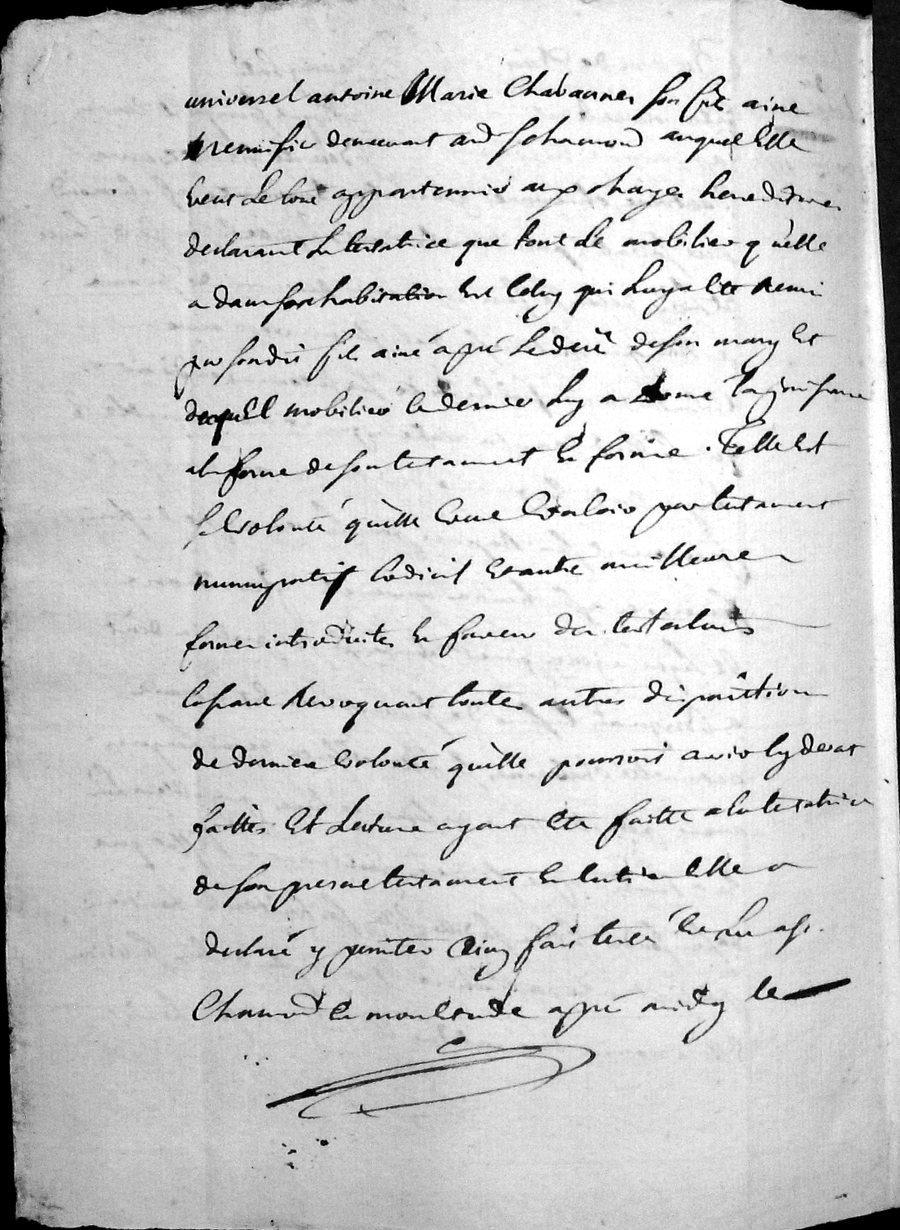 universel antoine Marie Chabannes son fils aine
demeurant aud St chamond auquel Elle
veut le tout appartenir aux charges hereditaires
declarant la testatrice que tout le mobilier qu'elle
a dans son habitation Est celuy qui luy a eté remi
par sondit fils ainé apré le decé de son mary Et
duquel mobilier ce dernier luy a donné la jouissance
a la forme de son testament En forme. Telle Est
sa volonté qu'elle veut valoir par testament
nuncupatif Codicil Et autre meilleure
forme introduites En faveur des testateurs
revoquant toutes autres disposition
de derniere volonté qu'elle pourroit avoir cy devat
faittes Et Lecture ayant eté faitte a la testatrice
de son present testament En Entier Elle a
declaré y persister Ainsy fait Leu a st
Chamond apré midy le